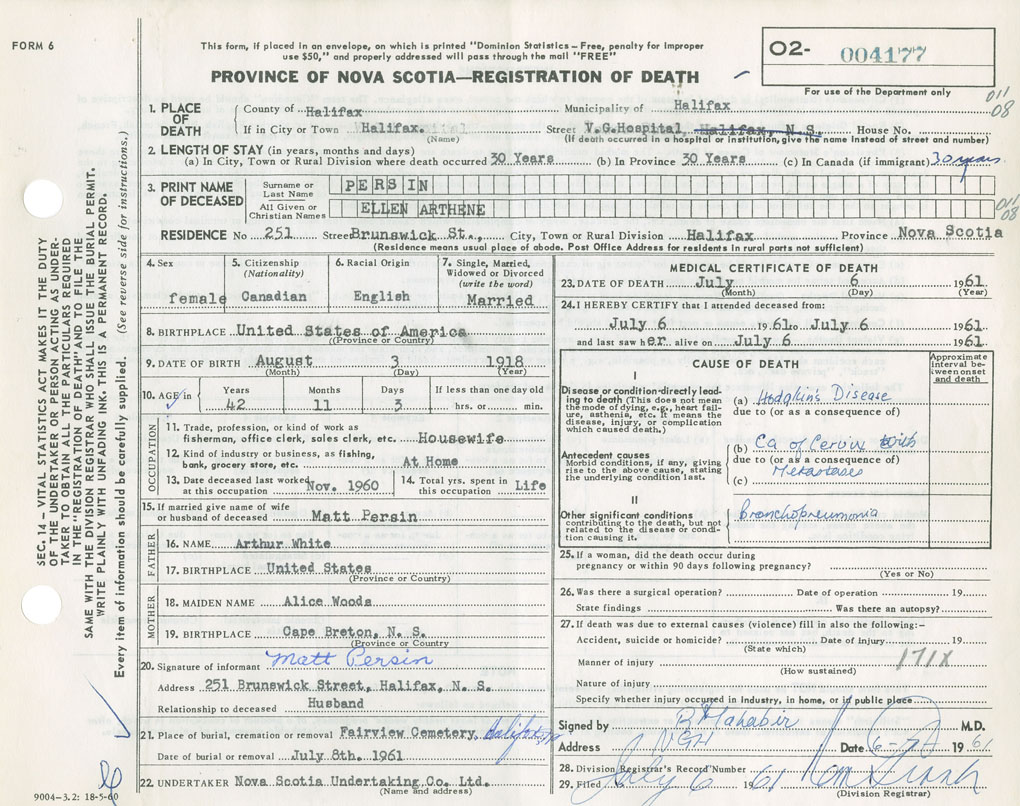 FORM 6
This form, if placed in an envelope, on which is printed "Dominion Statistics – Free, penalty for improper
use $50," and properly addressed will pass through the mail "FREE"
PROVINCE OF NOVA SCOTIA—REGISTRATION OF DEATH
O2- 004177
For use of the Department only
011
08
1. PLACE OF DEATH
County of Halifax Municipality of Halifax
If in City or Town Halifax. Street V.G.Hospital, Halifax, N.S. House No.
(Name) (If death occurred in a hospital or institution, give the name instead of street and number)
2. LENGTH OF STAY (in years, months and days)
(a) In City, Town or Rural Division where death occurred 30 Years (b) In Province 30 Years (c) In Canada (if immigrant) 30 years.
3. PRINT NAME OF DECEASED
Surname or Last Name PERSIN
All Given or Christian Names ELLEN ARTHENE
011
08
RESIDENCE No 251 Street Brunswick St., City, Town or Rural Division Halifax Province Nova Scotia
(Residence means usual place of abode. Post Office Address for residents in rural parts not sufficient)
4. Sex female
5. Citizenship (Nationality) Canadian
6. Racial Origin English
7. Single, Married, Widowed or Divorced (write the word) Married
8. BIRTHPLACE United States of America
(Province or Country)
9. DATE OF BIRTH August 3 1918
(Month) (Day) (Year)
10. AGE in Years Months Days If less than one day old
42 11 3 hrs. or min.
OCCUPATION
11. Trade, profession, or kind of work as
fisherman, office clerk, sales clerk, etc. Housewife
12. Kind of industry or business, as fishing,
bank, grocery store, etc. At Home
13. Date deceased last worked at this occupation Nov. 1960
14. Total yrs. spent in this occupation Life
15. If married give name of wife
or husband of deceased Matt Persin
FATHER
16. NAME Arthur White
17. BIRTHPLACE United States
(Province or Country)
MOTHER
18. MAIDEN NAME Alice Woods
19. BIRTHPLACE Cape Breton, N. S.
(Province or Country)
20. Signature of informant Matt Persin
Address 251 Brunswick Street, Halifax, N. S.
Relationship to deceased Husband
21. Place of burial, cremation or removal Fairview Cemetery, Halifax
Date of burial or removal July 8th. 1961
22. UNDERTAKER Nova Scotia Undertaking Co. Ltd.
(Name and address)
MEDICAL CERTIFICATE OF DEATH
23. DATE OF DEATH July 6 1961
(Month) (Day) (Year)
24. I HEREBY CERTIFY that I attended deceased from:
July 6 1961 to July 6 1961
and last saw her alive on July 6 1961
CAUSE OF DEATH
Approximate interval between onset and death
I
Disease or condition directly leading to death (This does not mean the mode of dying, e.g., heart failure, asthenia, etc. It means the disease, injury, or complication which caused death.)
(a) Hodgkin's Disease
due to (or as a consequence of)
Antecedent causes
Morbid conditions, if any, giving rise to the above cause, stating the underlying condition last.
(b) Ca of Cervix with
due to (or as a consequence of)
Metastases
(c)
II
Other significant conditions
contributing to the death, but not related to the disease or condition causing it.
Bronchopneumonia
25. If a woman, did the death occur during
pregnancy or within 90 days following pregnancy?
(Yes or No)
26. Was there a surgical operation? Date of operation 19
State findings Was there an autopsy?
27. If death was due to external causes (violence) fill in also the following:—
Accident, suicide or homicide? Date of injury 19
(State which)
Manner of injury 171X
(How sustained)
Nature of injury
Specify whether injury occurred in industry, in home, or in public place
Signed by M.D.
Address VGH Date 1961
28. Division Registrar's Record Number
29. Filed July 6 1961
(Division Registrar)
SEC. 14—VITAL STATISTICS ACT MAKES IT THE DUTY
OF THE UNDERTAKER OR PERSON ACTING AS UNDER-
TAKER TO OBTAIN ALL THE PARTICULARS REQUIRED
IN THE "REGISTRATION OF DEATH" AND TO FILE THE
SAME WITH THE DIVISION REGISTRAR WHO SHALL ISSUE THE BURIAL PERMIT.
WRITE PLAINLY WITH UNFADING INK. THIS IS A PERMANENT RECORD.
Every item of information should be carefully supplied. (See reverse side for instructions.)
9004-3.2: 18-5-60